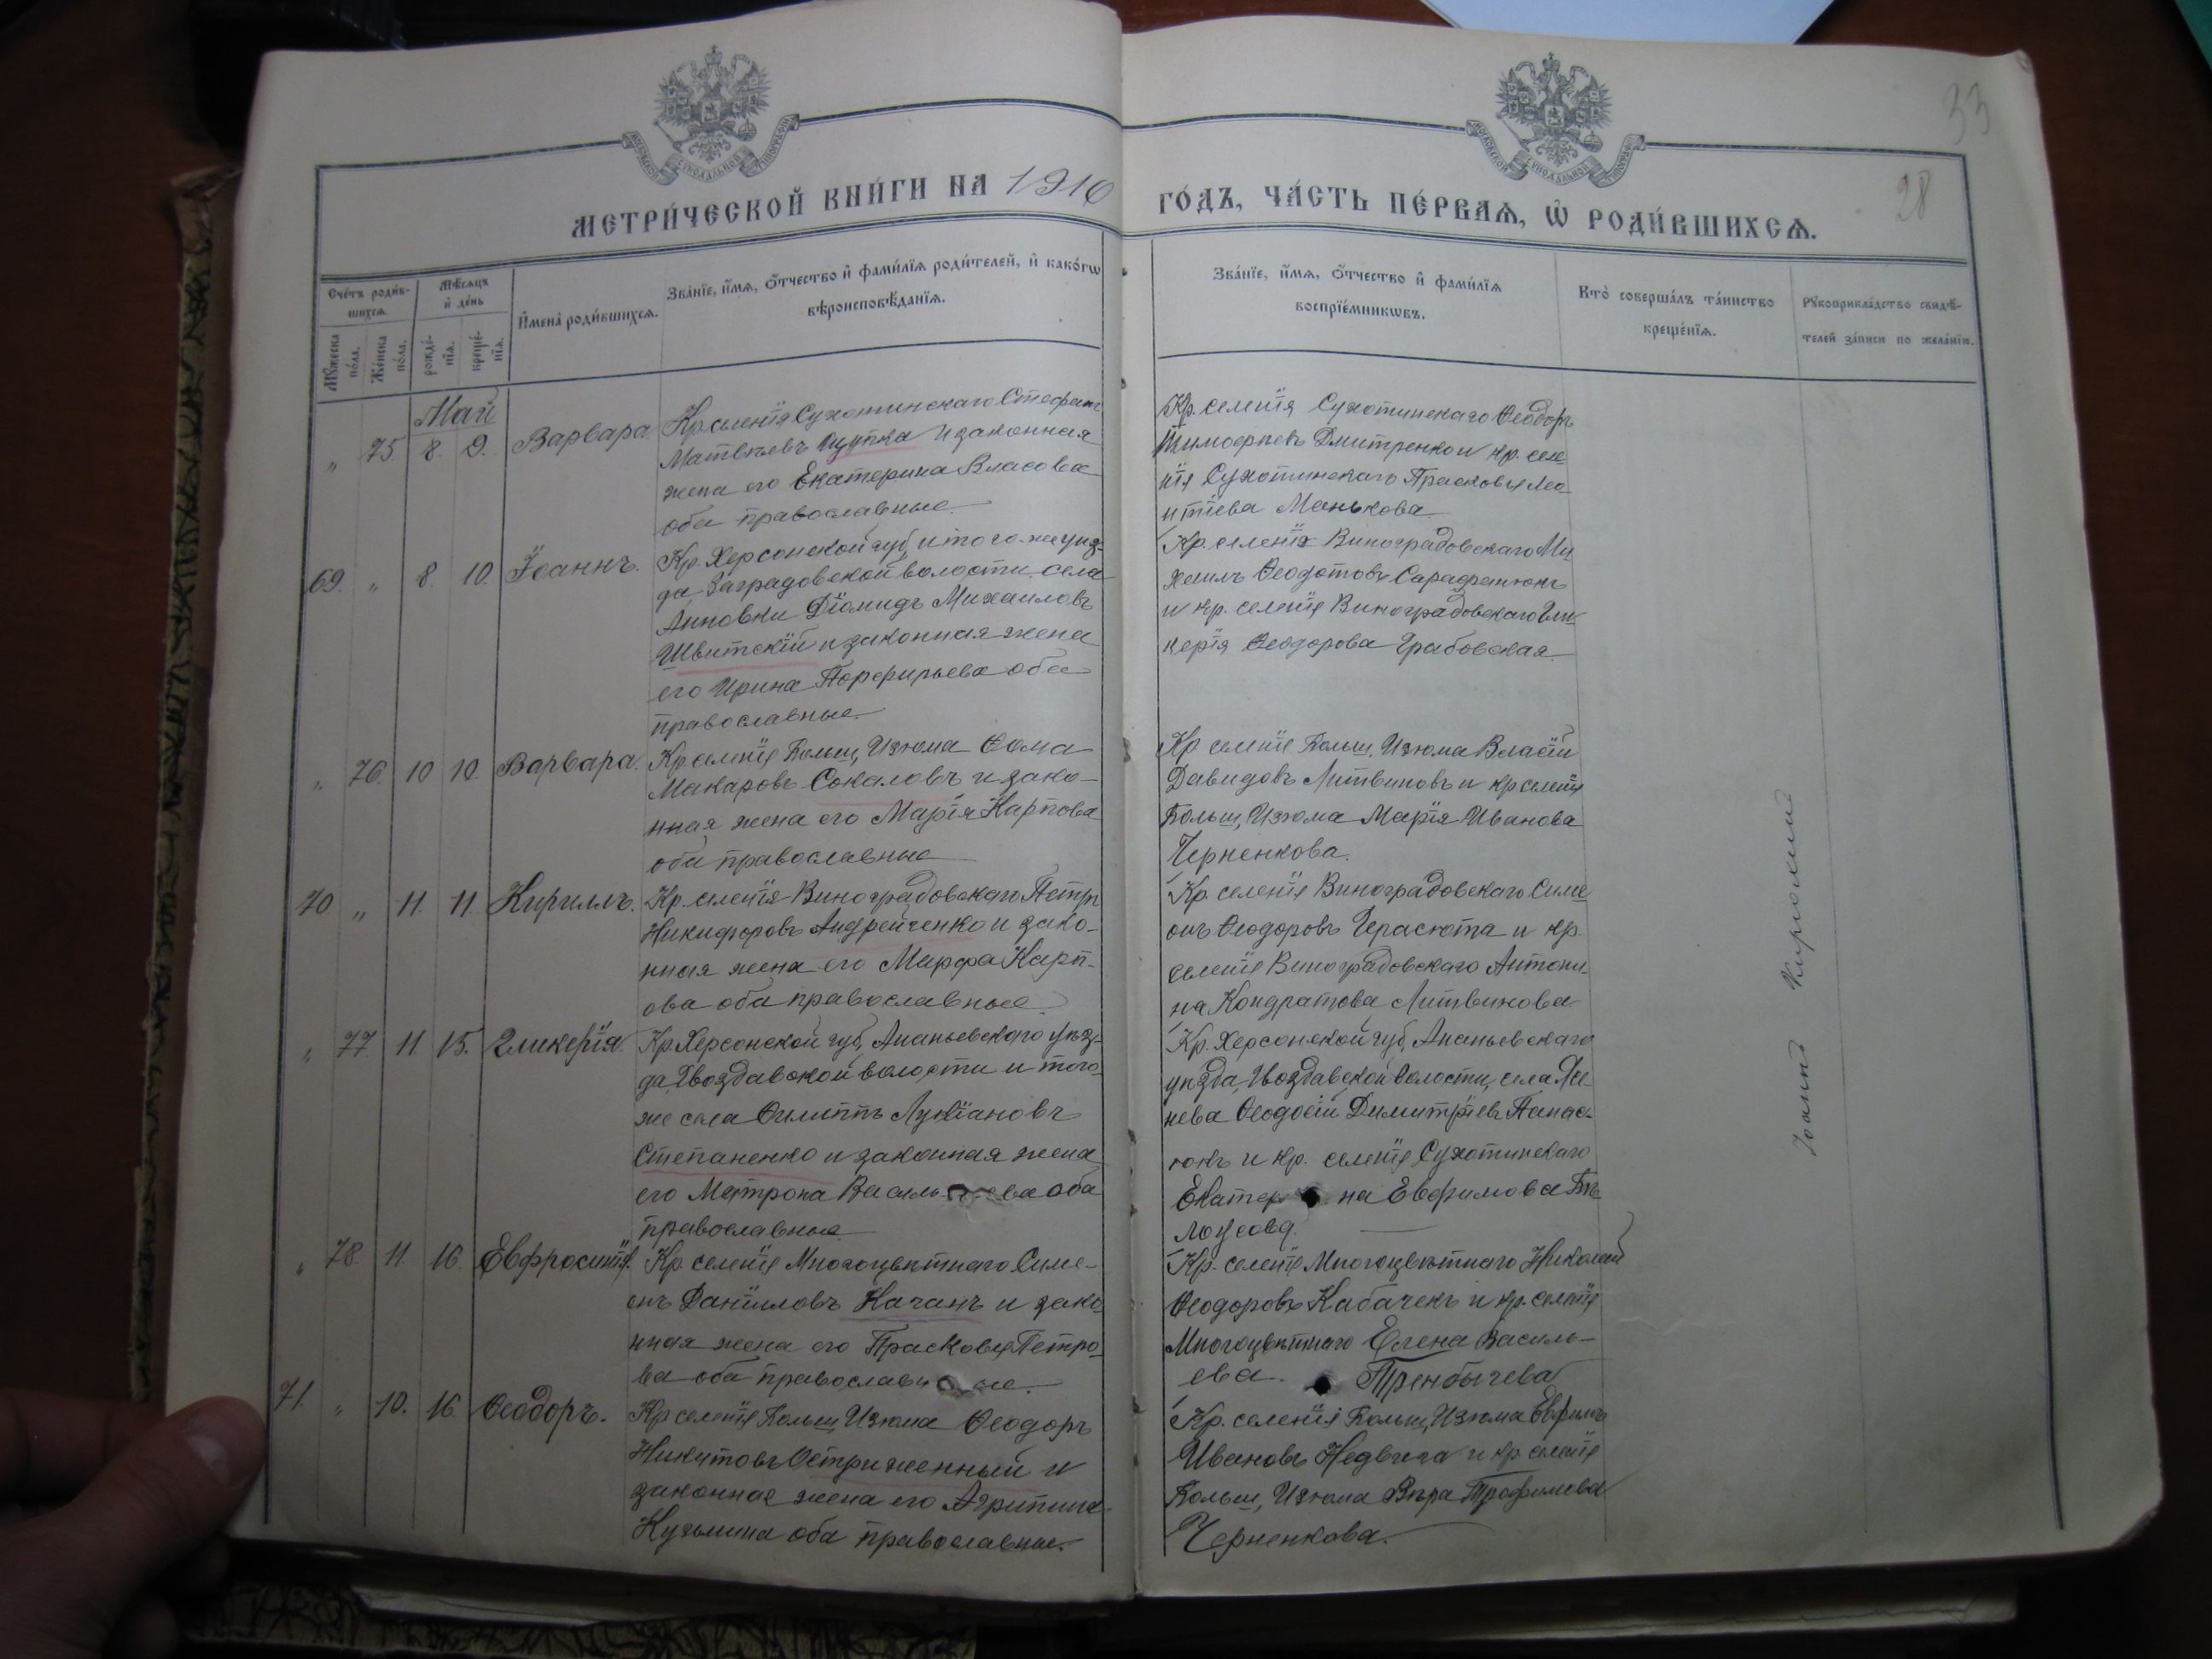 33
28
МОСКОВСКОЙ СѴНОДАЛЬНОЙ ТИПОГРАФІИ
МОСКОВСКОЙ СѴНОДАЛЬНОЙ ТИПОГРАФІИ
МЕТРИ́ЧЕСКОЙ КНИ́ГИ НА 1910
ГО́ДЪ, ЧА́СТЬ ПЕ́РВАѦ, Ѡ҆ РОДИ́ВШИХСѦ.
Сче́тъ роди́в-
шихсѧ.
Мꙋ́жеска по́ла.
Же́нска по́ла.
Мѣ́сѧцъ и҆ де́нь
рожде́-
нїѧ.
креще́-
нїѧ.
И҆мена̀ роди́вшихсѧ.
Зва́нїе, и҆́мѧ, ѻ҆́тчество и҆ фами́лїѧ роди́телей, и҆ како́гѡ
вѣроисповѣ́данїѧ.
Зва́нїе, и҆́мѧ, ѻ҆́тчество и҆ фами́лїѧ
воспрїе́мникѡвъ.
Кто̀ соверша́лъ та́инство
креще́нїѧ.
Рꙋкоприкла́дство свидѣ́-
телей за́писи по жела́нїю.
Май
„ 75. 8. 9. Варвара
Кр. селенія Сухотинскаго Стефанъ
Матвѣевъ Щупка и законная
жена его Екатерина Власова
оба православные.
Кр. селенія Сухотинскаго Ѳеодоръ
Тимофеевъ Дмитренко и кр. селе-
нія Сухотинскаго Прасковья Лео-
нтіева Манькова
69. „ 8. 10. Іоаннъ.
Кр. Херсонской губ, и того-же уѣз-
да, Заградовской волости, села
Анновки Діомидъ Михаиловъ
Швитскій и законная жена
его Ирина Порфирьева оба
православные.
Кр. селенія Виноградовскаго Ми-
хаилъ Ѳеодотовъ Сарафанюкъ
и кр. селенія Виноградовскаго Гли-
керія Ѳеодорова Грабовская.
„ 76. 10 10. Варвара.
Кр селенія Больш, Изюма Ѳома
Макаровъ Соколовъ и зако-
нная жена его Марія Карпова
оба православные
Кр селенія Больш, Изюма Власій
Давидовъ Литвиновъ и кр селенія
Больш, Изюма Марія Иванова
Черненкова.
70 „ 11. 11. Кириллъ.
Кр. селенія Виноградовскаго Петръ
Никифоровъ Андрейченко и зако-
нная жена его Марфа Карп-
ова оба православные.
Кр. селенія Виноградовскаго Симе
онъ Ѳеодоровъ Герасюта и кр.
селенія Виноградовскаго Антони-
на Кондратова Литвинова
„ 77 11. 15. Гликерія.
Кр. Херсонской губ, Ананьевскаго уѣз-
да, Гвоздавской волости и того-
же села Филиппъ Лукіановъ
Степаненко и законная жена
его Матрона Василь ева оба
православные
Кр. Херсонской губ, Ананьевскаго
уѣзда, Гвоздавской волости, села Ясе-
нева Ѳеодосій Димитріевъ Панас-
юкъ и кр. селенія Сухотинскаго
Екатер на Евфимова Бѣ-
лоусова.
„ 78. 11. 16. Евфросинія.
Кр. селенія Многоцвѣтнаго Симе-
онъ Даніиловъ Качанъ и зако-
нная жена его Прасковья Петро-
ва оба православн ые.
Кр. селенія Многоцвѣтнаго Николай
Ѳеодоровъ Кабачекъ и кр. селенія
Многоцвѣтнаго Елена Василь-
ева. Тренбычева
71. „ 10. 16. Ѳеодоръ.
Кр селенія Больш, Изюма Ѳеодоръ
Никитовъ Остриженный и
законная жена его Агрипина
Кузьмина оба православные.
Кр. селенія Больш, Изюма Евфимъ
Ивановъ Недвига и кр. селенія
Больш, Изюма Вѣра Трофимова
Черненкова.
Іоаннъ